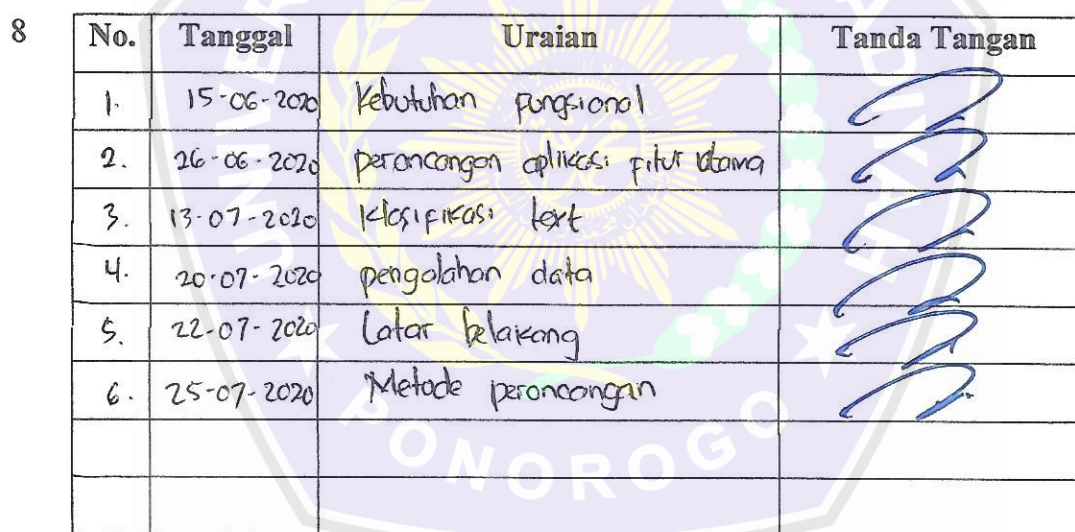 8
No. Tanggal Uraian Tanda Tangan
1. 15-06-2020 Kebutuhan fungsional
2. 26-06-2020 perancangan aplikasi fitur utama
3. 13-07-2020 Klasifikasi text
4. 20-07-2020 pengolahan data
5. 22-07-2020 Latar belakang
6. 25-07-2020 Metode perancangan
PONOROGO